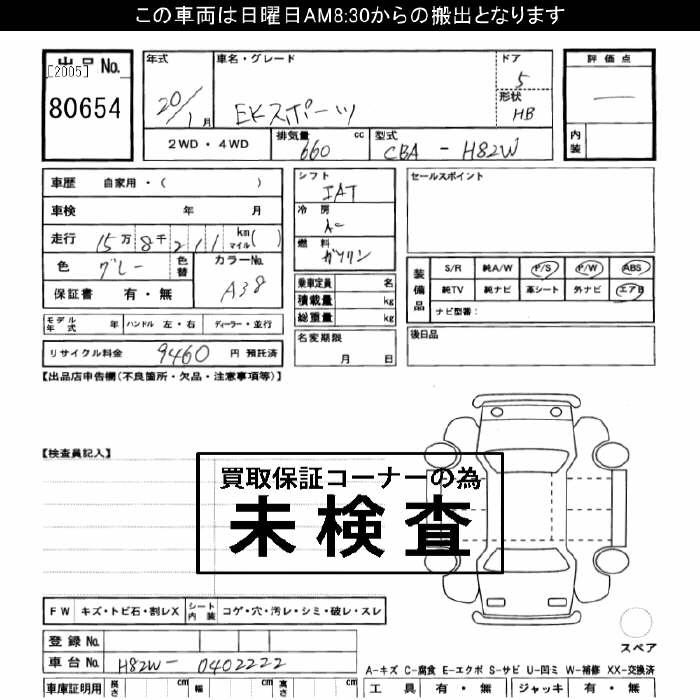 この車両は日曜日AM8:30からの搬出となります
出品No.
[2005]
80654
年式
20/1月
車名・グレード
EKスポーツ
ドア
5
形状
HB
評価点
内装
2WD・4WD
排気量
660 cc
型式
CBA - H82W
車歴 自家用・( )
車検 年 月
走行 15万8千211 km マイル( )
色 グレー 色替 カラーNo. A38
保証書 有・無
シフト
IAT
冷房
燃料
ガソリン
乗車定員 名
積載量 kg
総重量 kg
セールスポイント
装備品
S/R 純A/W P/S P/W ABS
純TV 純ナビ 革シート 外ナビ エアB
ナビ型番:
モデル年式 年 ハンドル 左・右 ディーラー・並行
リサイクル料金 9460 円 預託済
名変期限
月 日
後日品
【出品店申告欄(不良箇所・欠品・注意事項等)】
【検査員記入】
買取保証コーナーの為
未検査
FW キズ・トビ石・割レX シート内装 コゲ・穴・汚レ・シミ・破レ・スレ
登録No.
車台No. H82W- 0402222
車庫証明用 長さ cm 幅 cm 高さ cm
スペア
A-キズ C-腐食 E-エクボ S-サビ U-凹ミ W-補修 XX-交換済
工具 有・無 ジャッキ 有・無